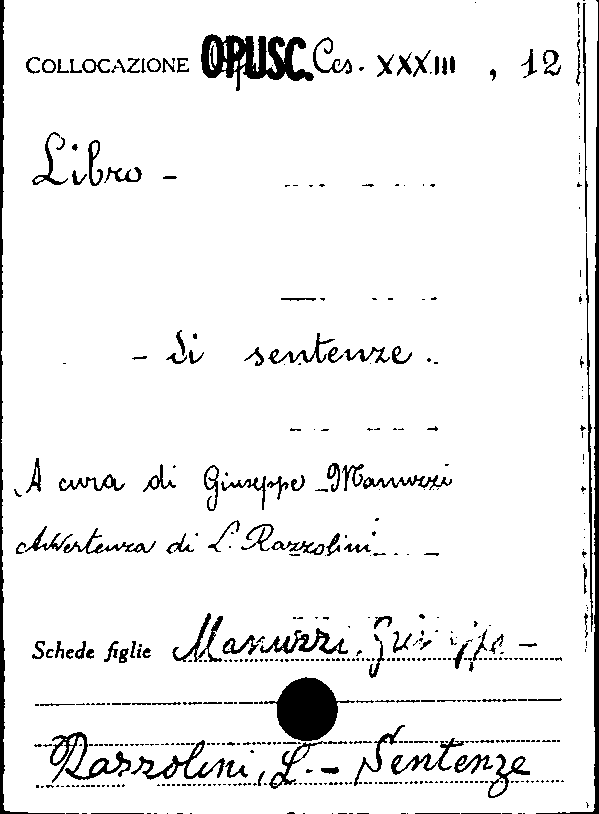 COLLOCAZIONE OPUSC. Ces. XXXIII , 12
Libro -
- di sentenze.
A cura di Giuseppe Manuzzi
Avvertenza di L. Razzolini
Schede figlie Manuzzi, Giuseppe -
Razzolini, L. - Sentenze